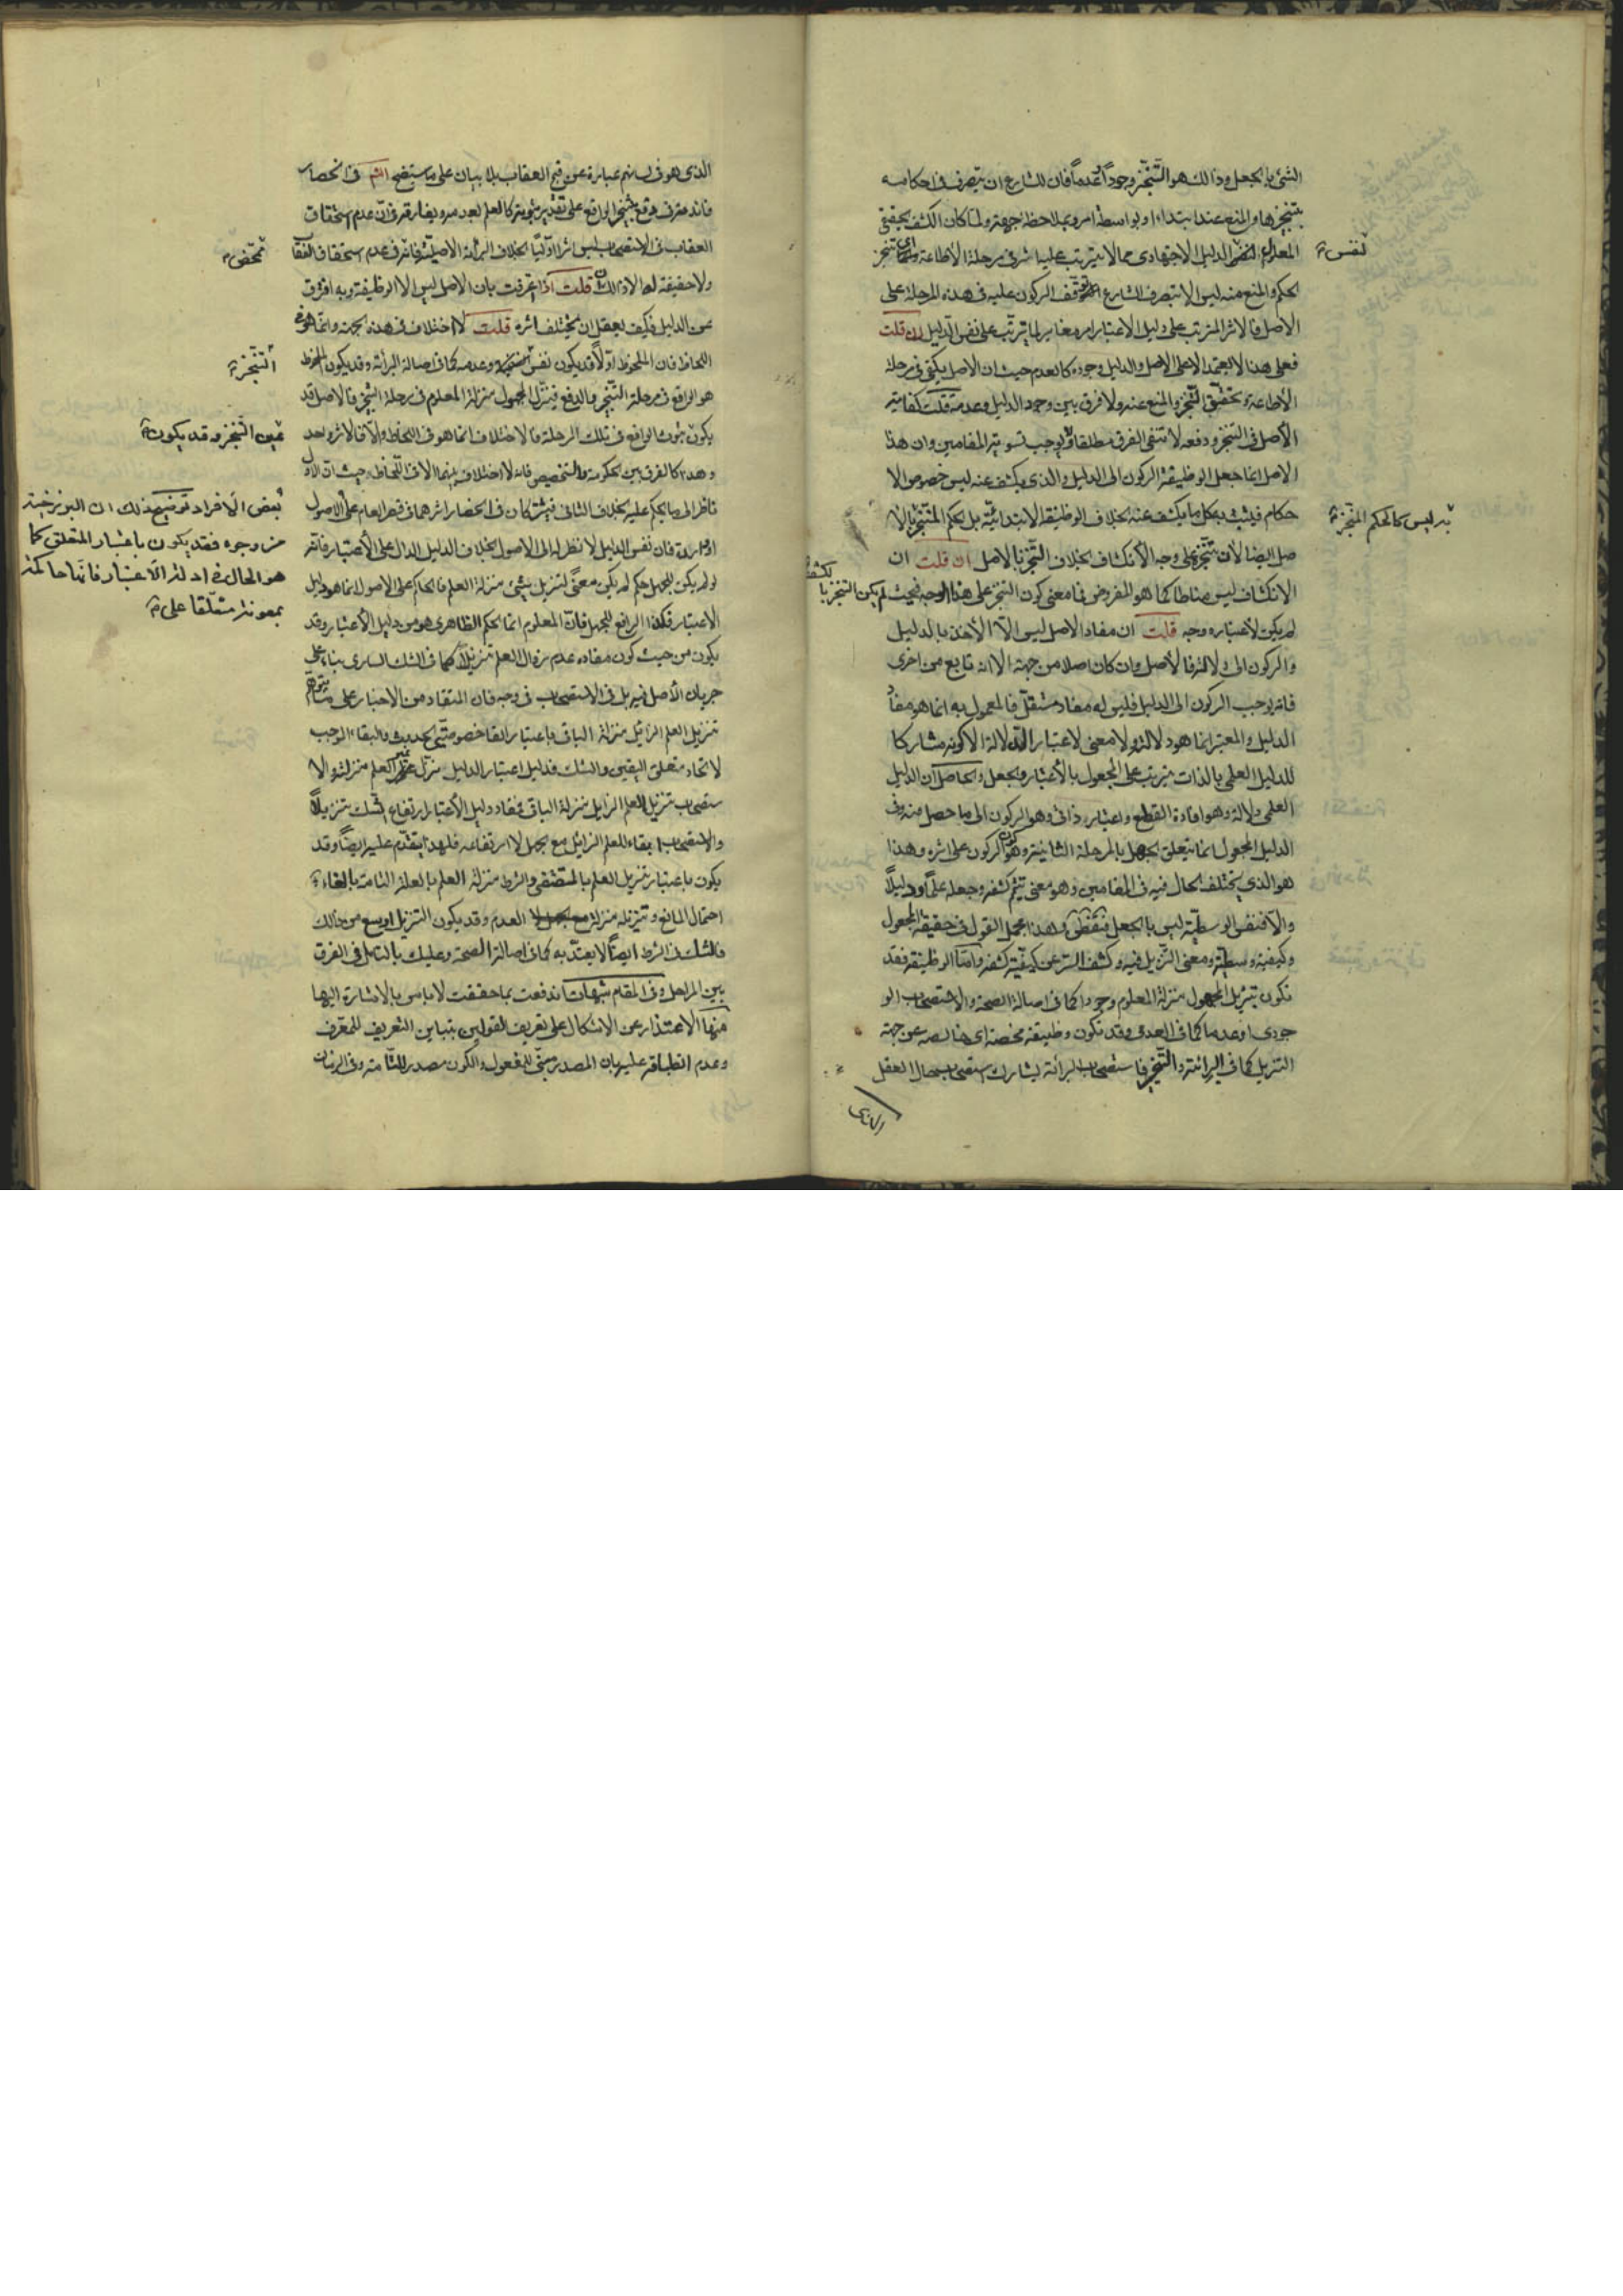 الشئ بالجعل وذالك هو التنجز وجوداً وعدماً فان للشارع ان يتصرف في احكامه
بتنجيزها والمنع عنه ابتداء او بواسطة امر وبملاحظة جهة ولما كان الكشف حقيقي
المعلول لنفس الدليل الاجتهادي مما لا يترتب عليه اثر في مرحلة الاطاعة تنجز
نفس
الحكم والمنع منه ليس الا بتصرف الشارع الركون عليه في هذه المرحلة على
الاصل فالاثر المترتب على دليل الاعتبار امر مغاير لما يترتب على نفس الدليل ان قلت
فعلى هذا لا يعتمد الا على الاصل والدليل وجوده كالعدم حيث ان الاصل يكفي في مرحلة
الاطاعة وتحقق التنجز والمنع عنه ولا فرق بين وجود الدليل وعدمه قلت كفاية
الاصل في التنجز ودفعه لا تنفى الفرق مطلقا ولا يوجب تسوية المقامين وان هذا
الاصل انما جعل الوظيفة الركون الى الدليل والذي يكشف عنه ليس خصوص الا
حكام فيثبت به كل ما يكشف عنه بخلاف الوظيفة الابتدائية بل الحكم المتنجز بالا
به ليس كالحكم المنجز
صل ايضا لان تنجزه على وجه الانكشاف بخلاف التنجز بالاصل ان قلت ان
الانكشاف ليس مناطا كما هو المفروض فما معنى كون التنجز على هذا الوجه فحيث لم يكن التنجز بالكشف
لم يكن لاعتباره وجه قلت ان مفاد الاصل ليس الا الأخذ بالدليل
والركون الى دلالته فالاصل وان كان اصلا من جهة الا انه تابع من اخرى
فانه يوجب الركون الى الدليل فليس له مفاد مستقل فالمعمول به انما هو مفاد
الدليل والمعتبر انما هو دلالته ولا معنى لاعتبار الدلالة الا كونه مشاركا
للدليل العلمي بالذات مرتب على المجعول بالاعتبار والجعل والحاصل ان الدليل
العلمي دلالة وهو افادة القطع واعتباره ذاتي وهو الركون الى ما حصل منه وفي
الدليل المجعول انما يتعلق الجعل بالمرحلة الثانية وهو كون الركون على اثره وهذا
هو الذي يختلف الحال فيه في المقامين وهو معنى تتميم كشفه وجعله علماً ودليلاً
والا فنفس الوسطية ليس بالجعل فتفطن وهذا مجمل القول في حقيقة المجعول
وكيفية وسطيته ومعنى التنزيل فيه وكشف الستر عن كيفية كشفه واما الوظيفة فقد
تكون تنزيل المجهول منزلة المعلوم وجودا كما في اصالة الصحة والاستصحاب الو
جودي او عدما كما في العدمي وقد تكون وظيفة محضة اي خالصة عن جهة
التنزيل كما في البرائة والتخيير فاستصحاب البرائة يشارك استصحاب حال العقل
الذي
الذي هو في لسانهم عبارة عن قبح العقاب بلا بيان على ما ستضح انشم في انحصار
العقاب في الاستصحاب ليس اثرا اوليا بخلاف البرائة الاصلية فانه في عدم استحقاق العقاب
محض
ولا حقيقة لها الا ذالك قلت عرفت بان الاصل ليس الا الوظيفة وبه افترق
عن الدليل فكيف يعقل ان يختلف اثره قلت لا اختلاف في هذه الجهة وانما هو في
اللحاظ فان الملحوظ اولا قد يكون نفس وعدمه كما في اصالة البرائة وقد يكون الملحوظ
التنجز
هو الواقع في مرحلة التنجز والدفع فينزل المجهول منزلة المعلوم في مرحلة التنجز فالاصل قد
عين التنجز وقد يكون
يكون ثبوت الواقع في تلك المرحلة فالاختلاف انما هو في اللحاظ والا فالاثر واحد
وهذا كالفرق بين الحكومة والتخصيص فانه لا اختلاف بينهما الا في اللحاظ وحيث ان الاول
ناظر الى ما يحكم عليه بخلاف الثاني فيشتركان في انحصار اثرهما في قصر العام على
بعض الافراد توضيح ذلك ان البرزخية
من وجوه فقد يكون باعتبار المتعلق كما
هو الحال في ادلة الاعتبار فانها حاكمة
بمعونة متعلقها على
الاصول
فان نفس الدليل لا نظر له الى الاصول بخلاف الدليل الدال على الاعتبار فانه
لو لم يكن للجهل حكم لم يكن معنى لتنزيل شئ منزلة العلم فالحاكم على الاصول انما هو دليل
الاعتبار فكذا الرافع للجهل فان المعلوم انما الحكم الظاهري هو من دليل الاعتبار وقد
يكون من حيث كون مفاده عدم زوال العلم تنزيلاً كما في الشك الساري بناء على
جريان الاصل فيه بل في الاستصحاب في وجه فان المستفاد من الاخبار على ما يتوهم
تنزيل العلم الزايل منزلة الباقي باعتبار الغاء خصوصيتي الحدوث والبقاء الموجب
لاتحاد متعلق اليقين والشك فدليل اعتبار الدليل ينزل غير العلم منزلته والا
ستصحاب تنزيل العلم الزايل منزلة الباقي فمفاد دليل الاعتبار ارتفاع الشك تنزيلاً
والاستصحاب ابقاء للعلم الزايل مع الجهل لا ارتفاعه فلهذا يتقدم عليه ايضاً وقد
يكون باعتبار تنزيل العلم بالمقتضى والشرط منزلة العلم بالعلة التامة بالغاء
احتمال المانع وتنزيله منزلة العدم وقد يكون التنزيل اوسع من ذالك
فالشك في الشرط ايضاً لا يعتد به كما في اصالة الصحة وعليك بالتامل في الفرق
بين المراحل وفي المقام شبهات اندفعت بما حققت لا باس بالاشارة اليها
منها الاعتذار عن الاشكال على تعريف القولين بتباين التعريف للمعرف
وعدم انطباقه عليه بان المصدر مبني للمفعول والكون مصدر للتامة وفي الزمان